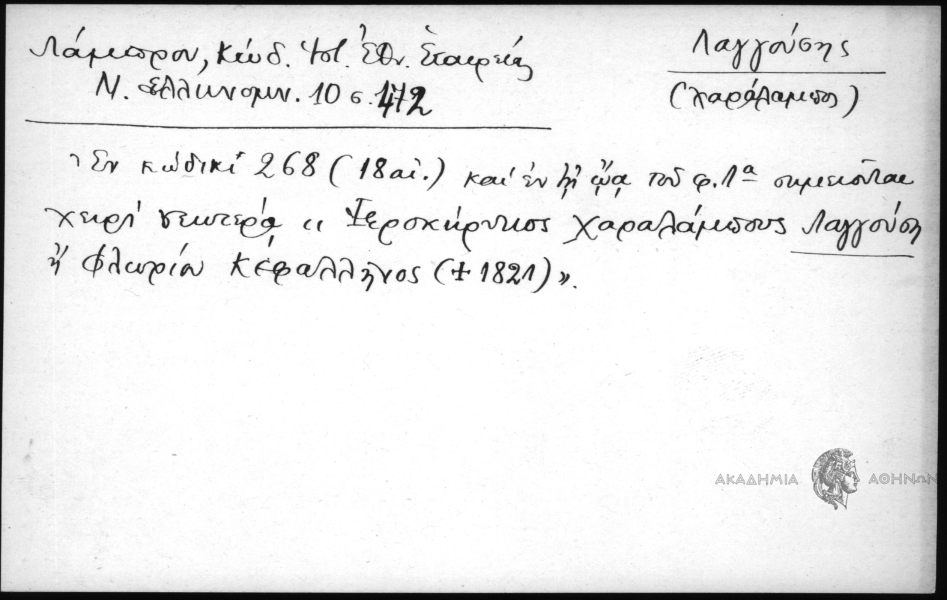 Λάμπρου, Κώδ. Ἱστ. Ἐθν. Ἑταιρείας
Ν. Ἑλληνομν. 10 σ. 472
Λαγγούσης
(Χαράλαμπος)
Ἐν κώδικι 268 (18 αἰ.) καὶ ἐν τῇ ᾤᾳ τοῦ φ. 1α σημειοῦται
χειρὶ νεωτέρᾳ «Ἱεροκήρυκος Χαραλάμπους Λαγγούση
ἢ Φλωρίου Κεφαλλῆνος (+1821)».
ΑΚΑΔΗΜΙΑ ΑΘΗΝΩΝ